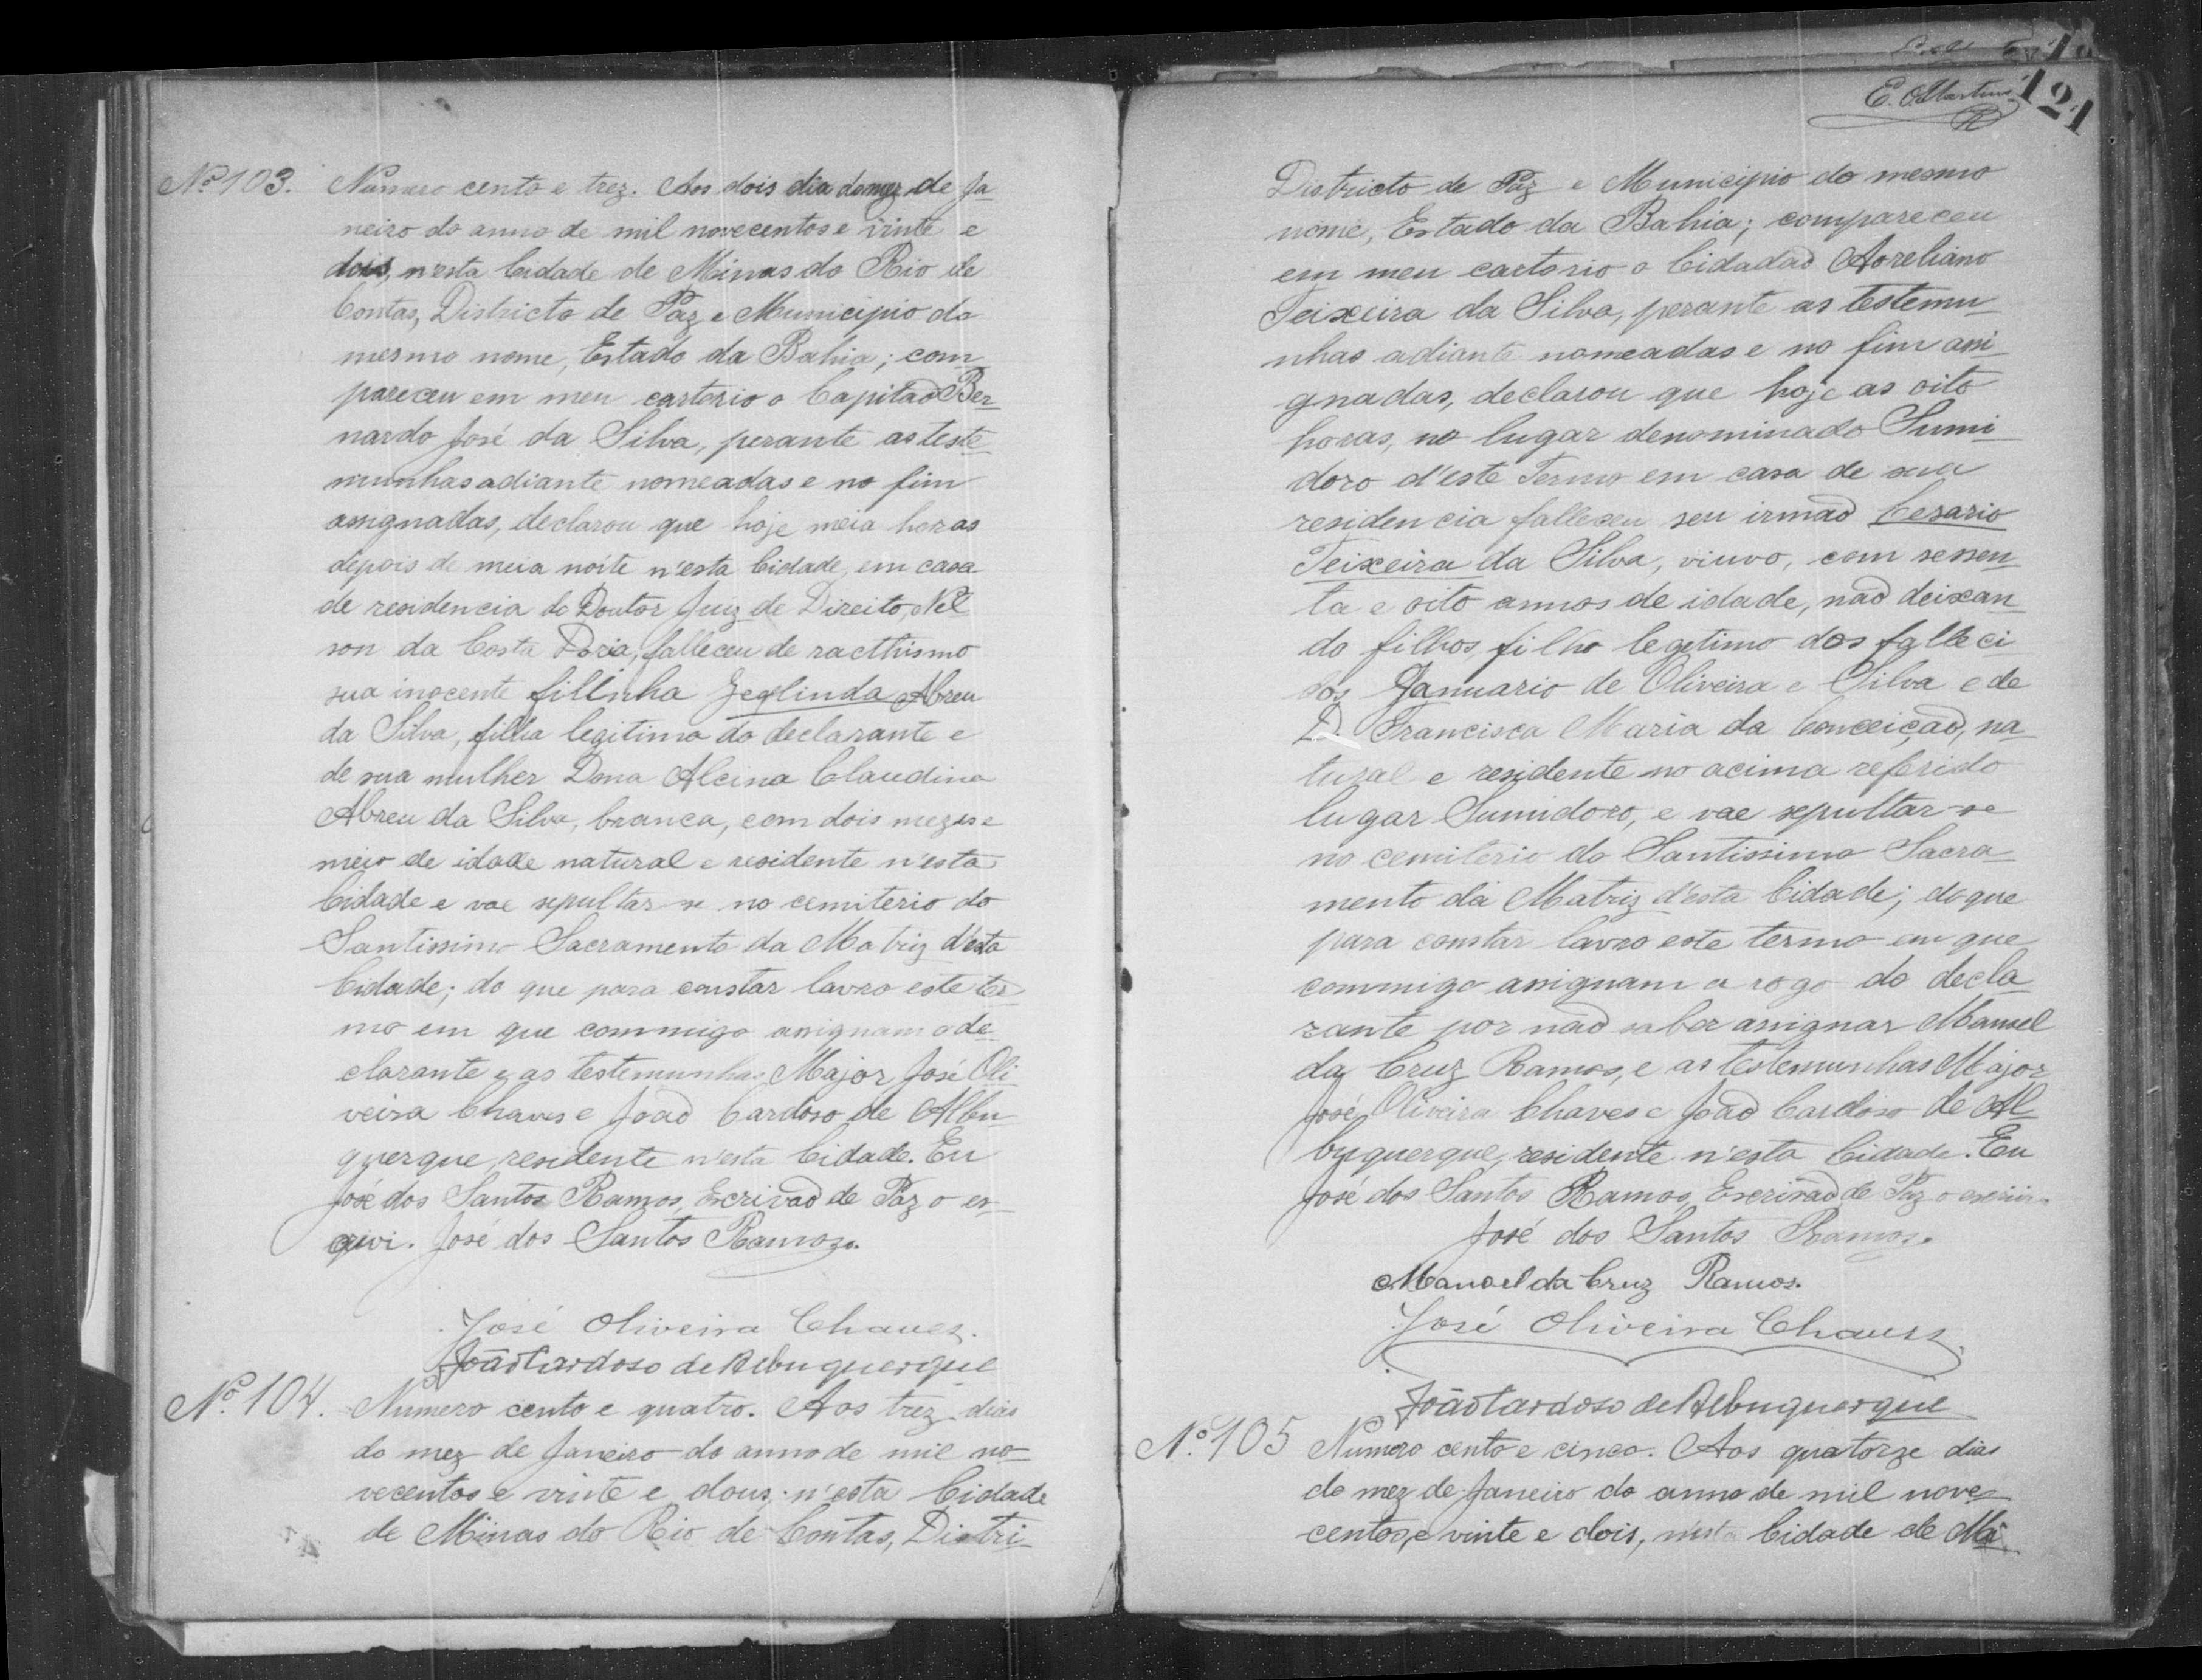 Nº 103.
Numero cento e trez. Aos dois dia do mez de Ja
neiro do anno de mil novecentos e vinte e
dois, n'esta Cidade de Minas do Rio de
Contas, Districto de Paz e Municipio do
mesmo nome, Estado da Bahia; com
pareceu em meu cartorio o Capitão Ber
nardo José da Silva, perante as teste
munhas adiante nomeadas e no fim
assignadas, declarou que hoje meia horas
depois de meia noite n'esta Cidade, em casa
de residencia do Doutor Juiz de Direito, Nel
son da Costa Doria, falleceu de racthismo
sua inocente filinha Abreu
da Silva, filha legitima do declarante e
de sua mulher Dona Alcina Claudina
Abreu da Silva, branca, com dois mezes e
meio de idade natural e residente n'esta
Cidade e vae sepultar-se no cemiterio do
Santissimo Sacramento da Matriz d'esta
Cidade; do que para constar lavro este ter
mo em que commigo assignam o de
clarante e as testemunhas Major José Oli
veira Chaves e João Cardoso de Albu
querque, residente n'esta Cidade. Eu
José dos Santos Ramos, Escrivão de Paz o es
crivi. José dos Santos Ramos.
José Oliveira Chaves.
João Cardoso de Albuquerque
Nº 104.
Numero cento e quatro. Aos trez dias
do mez de Janeiro do anno de mil no
vecentos e vinte e dous, n'esta Cidade
de Minas do Rio de Contas, Distri-
E. Martins
121
Districto de Paz e Municipio do mesmo
nome, Estado da Bahia; compareceu
em meu cartorio o Cidadão Aoreliano
Teixeira da Silva, perante as testemu
nhas adiante nomeadas e no fim assi
gnadas, declarou que hoje as oito
horas, no lugar denominado Sumi
doro d'este Termo em casa de sua
residencia falleceu seu irmão Cesario
Teixeira da Silva, viuvo, com sessen
ta e oito annos de idade, não deixan
do filhos, filho legetimo dos falleci
dos Januario de Oliveira e Silva e de
D. Francisca Maria da Conceição, na
tural e residente no acima referido
lugar Sumidoro, e vae sepultar-se
no cemiterio do Santissimo Sacra
mento da Matriz d'esta Cidade; do que
para constar lavro este termo em que
commigo assignam a rogo do decla
rante por não saber assignar Manoel
da Cruz Ramos, e as testemunhas Major
José Oliveira Chaves e João Cardoso de Al
buquerque, residente n'esta Cidade. Eu
José dos Santos Ramos, Escrivão de Paz o escrivi.
José dos Santos Ramos.
Manoel da Cruz Ramos.
José Oliveira Chaves
João Cardoso de Albuquerque
Nº 105
Numero cento e cinco. Aos quatorze dias
do mez de Janeiro do anno de mil nove
centos, e vinte e dois, n'esta Cidade de Mi